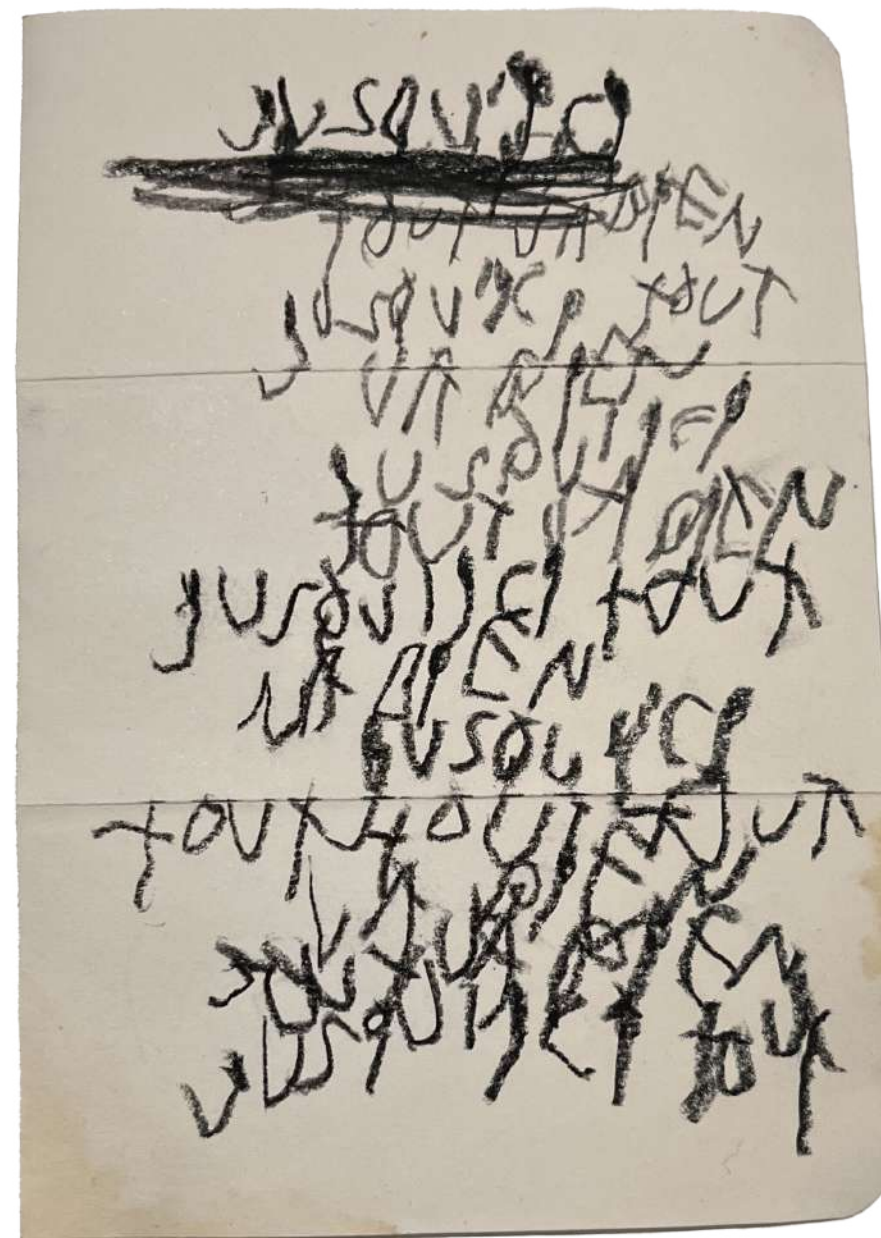 JUSQU'ICI
TOUT VA BIEN
JUSQU'ICI TOUT
VA BIEN
JUSQU'ICI
TOUT VA BIEN
JUSQU'ICI TOUT
VA BIEN
JUSQU'ICI
TOUT TOUT TOUT
VA BIEN
TOUT VA BIEN
JUSQU'ICI TOUT